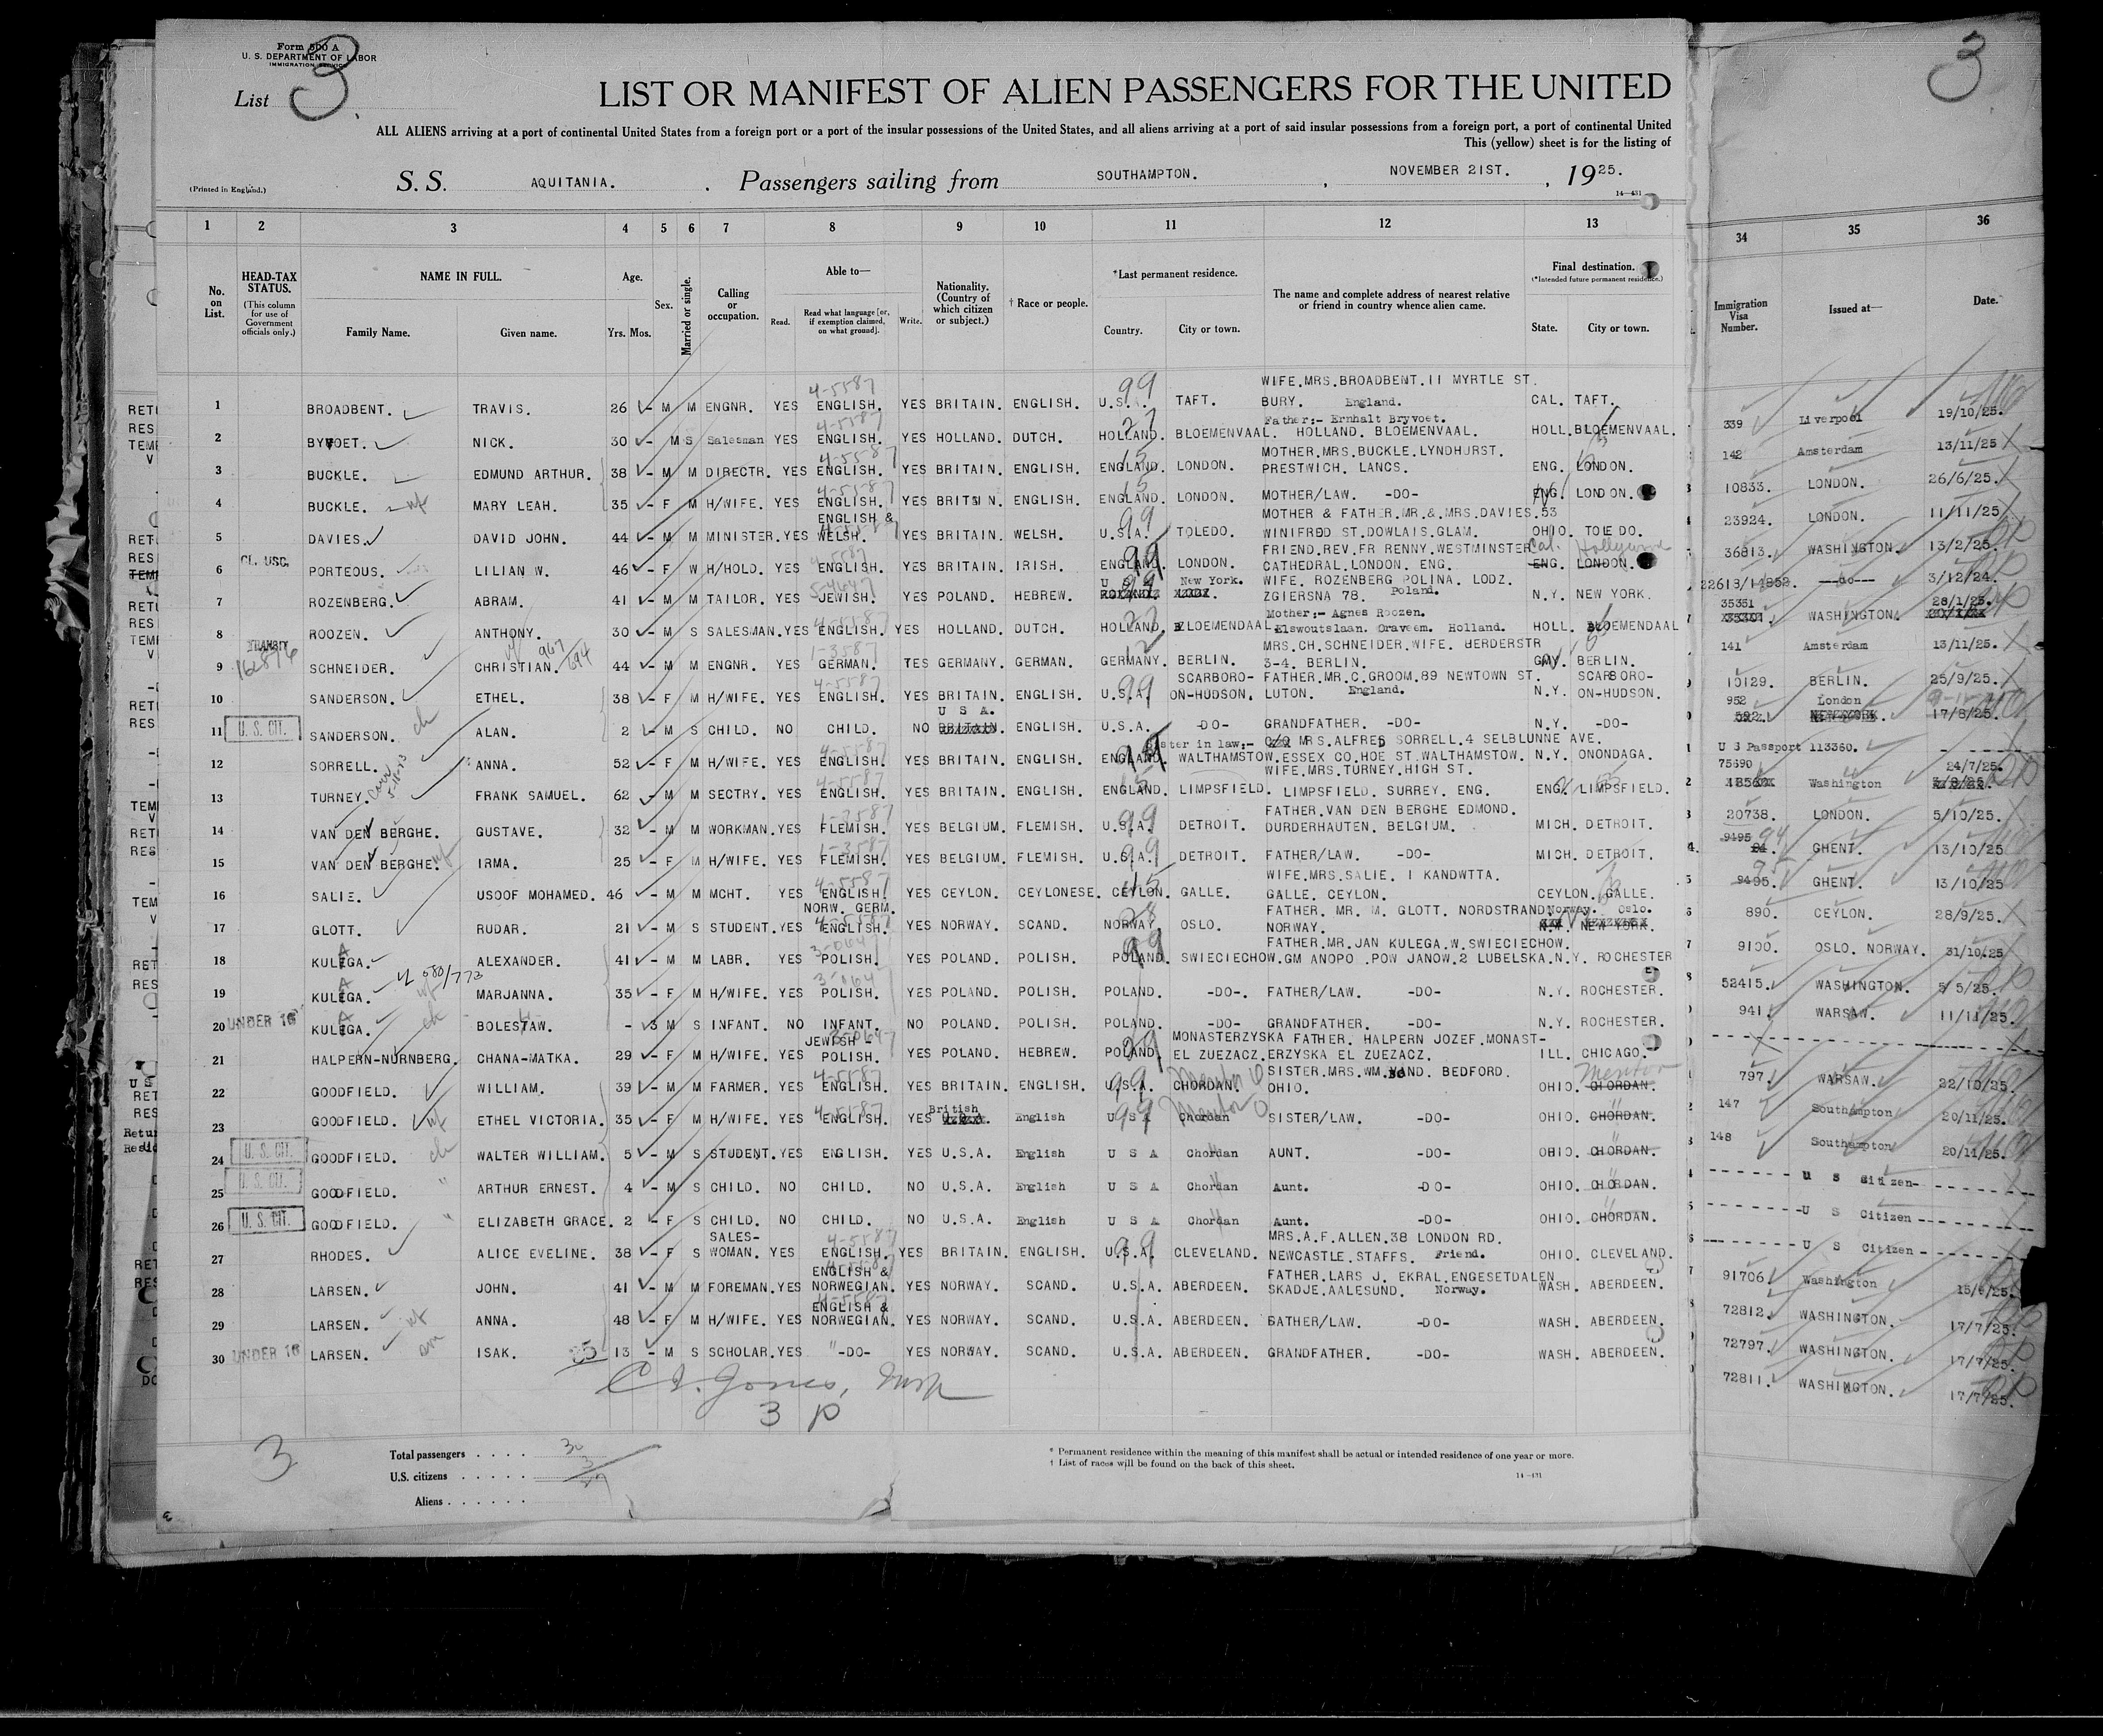 Form 500 A
U. S. DEPARTMENT OF LABOR
IMMIGRATION SERVICE
List 3
3
LIST OR MANIFEST OF ALIEN PASSENGERS FOR THE UNITED
ALL ALIENS arriving at a port of continental United States from a foreign port or a port of the insular possessions of the United States, and all aliens arriving at a port of said insular possessions from a foreign port, a port of continental United
This (yellow) sheet is for the listing of
(Printed in England.) S. S. AQUITANIA. Passengers sailing from SOUTHAMPTON. , NOVEMBER 21ST. , 1925.
14—431
1 2 3 4 5 6 7 8 9 10 11 12 13 34 35 36
No. on List. HEAD-TAX STATUS. (This column for use of Government officials only.) NAME IN FULL. Family Name. Given name. Age. Yrs. Mos. Sex. Married or single. Calling or occupation. Able to— Read. Read what language [or, if exemption claimed, on what ground]. Write. Nationality. (Country of which citizen or subject.) † Race or people. *Last permanent residence. Country. City or town. The name and complete address of nearest relative or friend in country whence alien came. Final destination. (*Intended future permanent residence.) State. City or town. Immigration Visa Number. Issued at— Date.
1 BROADBENT. TRAVIS. 26 M M ENGNR. YES ENGLISH. 4-5587 YES BRITAIN. ENGLISH. U.S.A. 99 TAFT. WIFE.MRS.BROADBENT.11 MYRTLE ST. BURY. England. CAL. TAFT. 339 Liverpool 19/10/25.
2 BYVOET. NICK. 30 M S Salesman YES ENGLISH. 4-5587 YES HOLLAND. DUTCH. HOLLAND. 27 BLOEMENVAAL. Father:- Ernhalt Bryvoet. HOLLAND. BLOEMENVAAL. HOLL. BLOEMENVAAL. 142 Amsterdam 13/11/25
3 BUCKLE. EDMUND ARTHUR. 38 M M DIRECTR. YES ENGLISH. 4-5587 YES BRITAIN. ENGLISH. ENGLAND. 15 LONDON. MOTHER.MRS.BUCKLE.LYNDHURST. PRESTWICH. LANCS. ENG. LONDON. 10833. LONDON. 26/6/25.
4 BUCKLE. wf MARY LEAH. 35 F M H/WIFE. YES ENGLISH. 4-5587 YES BRITAIN. ENGLISH. ENGLAND. 15 LONDON. MOTHER/LAW. -DO- ENG. LONDON. 23924. LONDON. 11/11/25.
5 DAVIES. DAVID JOHN. 44 M M MINISTER. YES ENGLISH & WELSH. 4-5587 YES BRITAIN. WELSH. U.S.A. 99 TOLEDO. MOTHER & FATHER.MR.&.MRS.DAVIES.53 WINIFRED ST.DOWLAIS.GLAM. OHIO. TOLEDO. 36813. WASHINGTON. 13/2/25.
6 PORTEOUS. LILIAN W. 46 F W H/HOLD. YES ENGLISH. 4-5587 YES BRITAIN. IRISH. ENGLAND. 99 LONDON. FRIEND.REV.FR RENNY.WESTMINSTER CATHEDRAL.LONDON. ENG. Cal. Hollywood ENG. LONDON. 22618/14852. —do— 3/12/24.
7 ROZENBERG. ABRAM. 41 M M TAILOR. YES JEWISH. YES POLAND. HEBREW. U S A 99 New York. WIFE. ROZENBERG POLINA. LODZ. ZGIERSNA 78. Poland. N.Y. NEW YORK. 35351 WASHINGTON. 28/1/25.
8 ROOZEN. ANTHONY. 30 M S SALESMAN. YES ENGLISH. 4-5587 YES HOLLAND. DUTCH. HOLLAND. 27 BLOEMENDAAL. Mother:- Agnes Roozen. Elswoutslaan. Oraveem. Holland. HOLL. BLOEMENDAAL 141 Amsterdam 13/11/25.
9 TRANSIT SCHNEIDER. CHRISTIAN. 44 M M ENGNR. YES GERMAN. 1-3587 TES GERMANY. GERMAN. GERMANY. 12 BERLIN. MRS.CH.SCHNEIDER.WIFE. HERDERSTR 3-4. BERLIN. GMY. BERLIN. 10129. BERLIN. 25/9/25.
10 SANDERSON. ETHEL. 38 F M H/WIFE. YES ENGLISH. 4-5587 YES BRITAIN. ENGLISH. U.S.A. 99 SCARBORO-ON-HUDSON. FATHER.MR.C.GROOM.89 NEWTOWN ST. LUTON. England. N.Y. SCARBORO-ON-HUDSON. 952 London 17/8/25.
11 U. S. CIT. SANDERSON. ch ALAN. 2 M S CHILD. NO CHILD. NO U S A. BRITAIN. ENGLISH. U.S.A. -DO- GRANDFATHER. -DO- N.Y. -DO- U S Passport 113360.
12 SORRELL. ANNA. 52 F M H/WIFE. YES ENGLISH. 4-5587 YES BRITAIN. ENGLISH. ENGLAND. WALTHAMSTOW. Sister in law:- MRS.ALFRED SORRELL.4 SELBLUNNE AVE. ESSEX CO.HOE ST.WALTHAMSTOW. N.Y. ONONDAGA. 75690 Washington 24/7/25.
13 TURNEY. FRANK SAMUEL. 62 M M SECTRY. YES ENGLISH. 4-5587 YES BRITAIN. ENGLISH. ENGLAND. 15 LIMPSFIELD. WIFE.MRS.TURNEY.HIGH ST. LIMPSFIELD. SURREY. ENG. ENG. LIMPSFIELD. 20738. LONDON. 5/10/25.
14 VAN DEN BERGHE. GUSTAVE. 32 M M WORKMAN. YES FLEMISH. 1-3587 YES BELGIUM. FLEMISH. U.S.A. 99 DETROIT. FATHER.VAN DEN BERGHE EDMOND. DURDERHAUTEN. BELGIUM. MICH. DETROIT. 9495 94 GHENT. 13/10/25
15 VAN DEN BERGHE. wf IRMA. 25 F M H/WIFE. YES FLEMISH. 1-3587 YES BELGIUM. FLEMISH. U.S.A. 99 DETROIT. FATHER/LAW. -DO- MICH. DETROIT. 9495. GHENT. 13/10/25
16 SALIE. USOOF MOHAMED. 46 M M MCHT. YES ENGLISH. 4-5587 YES CEYLON. CEYLONESE. CEYLON. 15 GALLE. WIFE.MRS.SALIE. 1 KANDWTTA. GALLE. CEYLON. CEYLON. GALLE. 890. CEYLON. 28/9/25.
17 GLOTT. RUDAR. 21 M S STUDENT. YES NORW. GERM. ENGLISH. 4-5587 YES NORWAY. SCAND. NORWAY. 28 OSLO. FATHER. MR. M. GLOTT. NORDSTRAND NORWAY. Norway. Oslo. N.Y. NEW YORK. 9100. OSLO. NORWAY. 31/10.25
18 KULEGA. A ALEXANDER. 41 M M LABR. YES POLISH. 3-0647 YES POLAND. POLISH. POLAND. 99 SWIECIECHOW. FATHER.MR.JAN KULEGA.W.SWIECIECHOW. GM ANOPO .POW JANOW.2 LUBELSKA. N.Y. ROCHESTER 52415. WASHINGTON. 5/5/25.
19 KULEGA. A wf MARJANNA. 35 F M H/WIFE. YES POLISH. 3-0647 YES POLAND. POLISH. POLAND. -DO-. FATHER/LAW. -DO- N.Y. ROCHESTER. 941. WARSAW. 11/11/25.
20 UNDER 16 KULEGA. A ch BOLESTAW. - 3 M S INFANT. NO INFANT. NO POLAND. POLISH. POLAND. -DO- GRANDFATHER. -DO- N.Y. ROCHESTER.
21 HALPERN-NURNBERG. CHANA-MATKA. 29 F M H/WIFE. YES JEWISH - POLISH. YES POLAND. HEBREW. POLAND. 99 MONASTERZYSKA EL ZUEZACZ. FATHER. HALPERN JOZEF.MONAST-ERZYSKA EL ZUEZACZ. ILL. CHICAGO. 797. WARSAW. 22/10/25.
22 GOODFIELD. WILLIAM. 39 M M FARMER. YES ENGLISH. 4-5587 YES BRITAIN. ENGLISH. U.S.A. 99 CHORDAN. Mentor O SISTER.MRS.WM.WAND. BEDFORD. OHIO. OHIO. CHORDAN. Mentor 147 Southampton 20/11/25.
23 GOODFIELD. wf ETHEL VICTORIA. 35 F M H/WIFE. YES ENGLISH. 4-5587 YES British English U S A 99 Chordan Mentor O SISTER/LAW. -DO- OHIO. CHORDAN. 148 Southampton 20/11/25.
24 U. S. CIT. GOODFIELD. ch WALTER WILLIAM. 5 M S STUDENT. YES ENGLISH. YES U.S.A. English U S A Chordan AUNT. -DO- OHIO. CHORDAN. U S Citizen-
25 U. S. CIT. GOODFIELD. " ARTHUR ERNEST. 4 M S CHILD. NO CHILD. NO U.S.A. English U S A Chordan Aunt. -DO- OHIO. CHORDAN. U S Citizen
26 U. S. CIT. GOODFIELD. " ELIZABETH GRACE. 2 F S CHILD. NO CHILD. NO U.S.A. English U S A Chordan Aunt. -DO- OHIO. CHORDAN. U S Citizen
27 RHODES. ALICE EVELINE. 38 F S SALES-WOMAN. YES ENGLISH. 4-5587 YES BRITAIN. ENGLISH. U.S.A. 99 CLEVELAND. MRS.A.F.ALLEN.38 LONDON RD. NEWCASTLE.STAFFS. Friend. OHIO. CLEVELAND. 91706. Washington 15/6/25.
28 LARSEN. JOHN. 41 M M FOREMAN. YES ENGLISH & NORWEGIAN. YES NORWAY. SCAND. U.S.A. ABERDEEN. FATHER.LARS J. EKRAL.ENGESETDALEN SKADJE.AALESUND. Norway. WASH. ABERDEEN. 72812. WASHINGTON. 17/7/25.
29 LARSEN. wf ANNA. 48 F M H/WIFE. YES ENGLISH & NORWEGIAN. YES NORWAY. SCAND. U.S.A. ABERDEEN. GATHER/LAW. -DO- WASH. ABERDEEN. 72797. WASHINGTON. 17/7/25.
30 UNDER 16 LARSEN. ISAK. 13 M S SCHOLAR. YES "-DO- YES NORWAY. SCAND. U.S.A. ABERDEEN. GRANDFATHER. -DO- WASH. ABERDEEN. 72811. WASHINGTON. 17/7/25.
3 P
3
Total passengers . . . . 30
U.S. citizens . . . . . 3
Aliens . . . . . . 27
* Permanent residence within the meaning of this manifest shall be actual or intended residence of one year or more.
† List of races will be found on the back of this sheet.
14—431